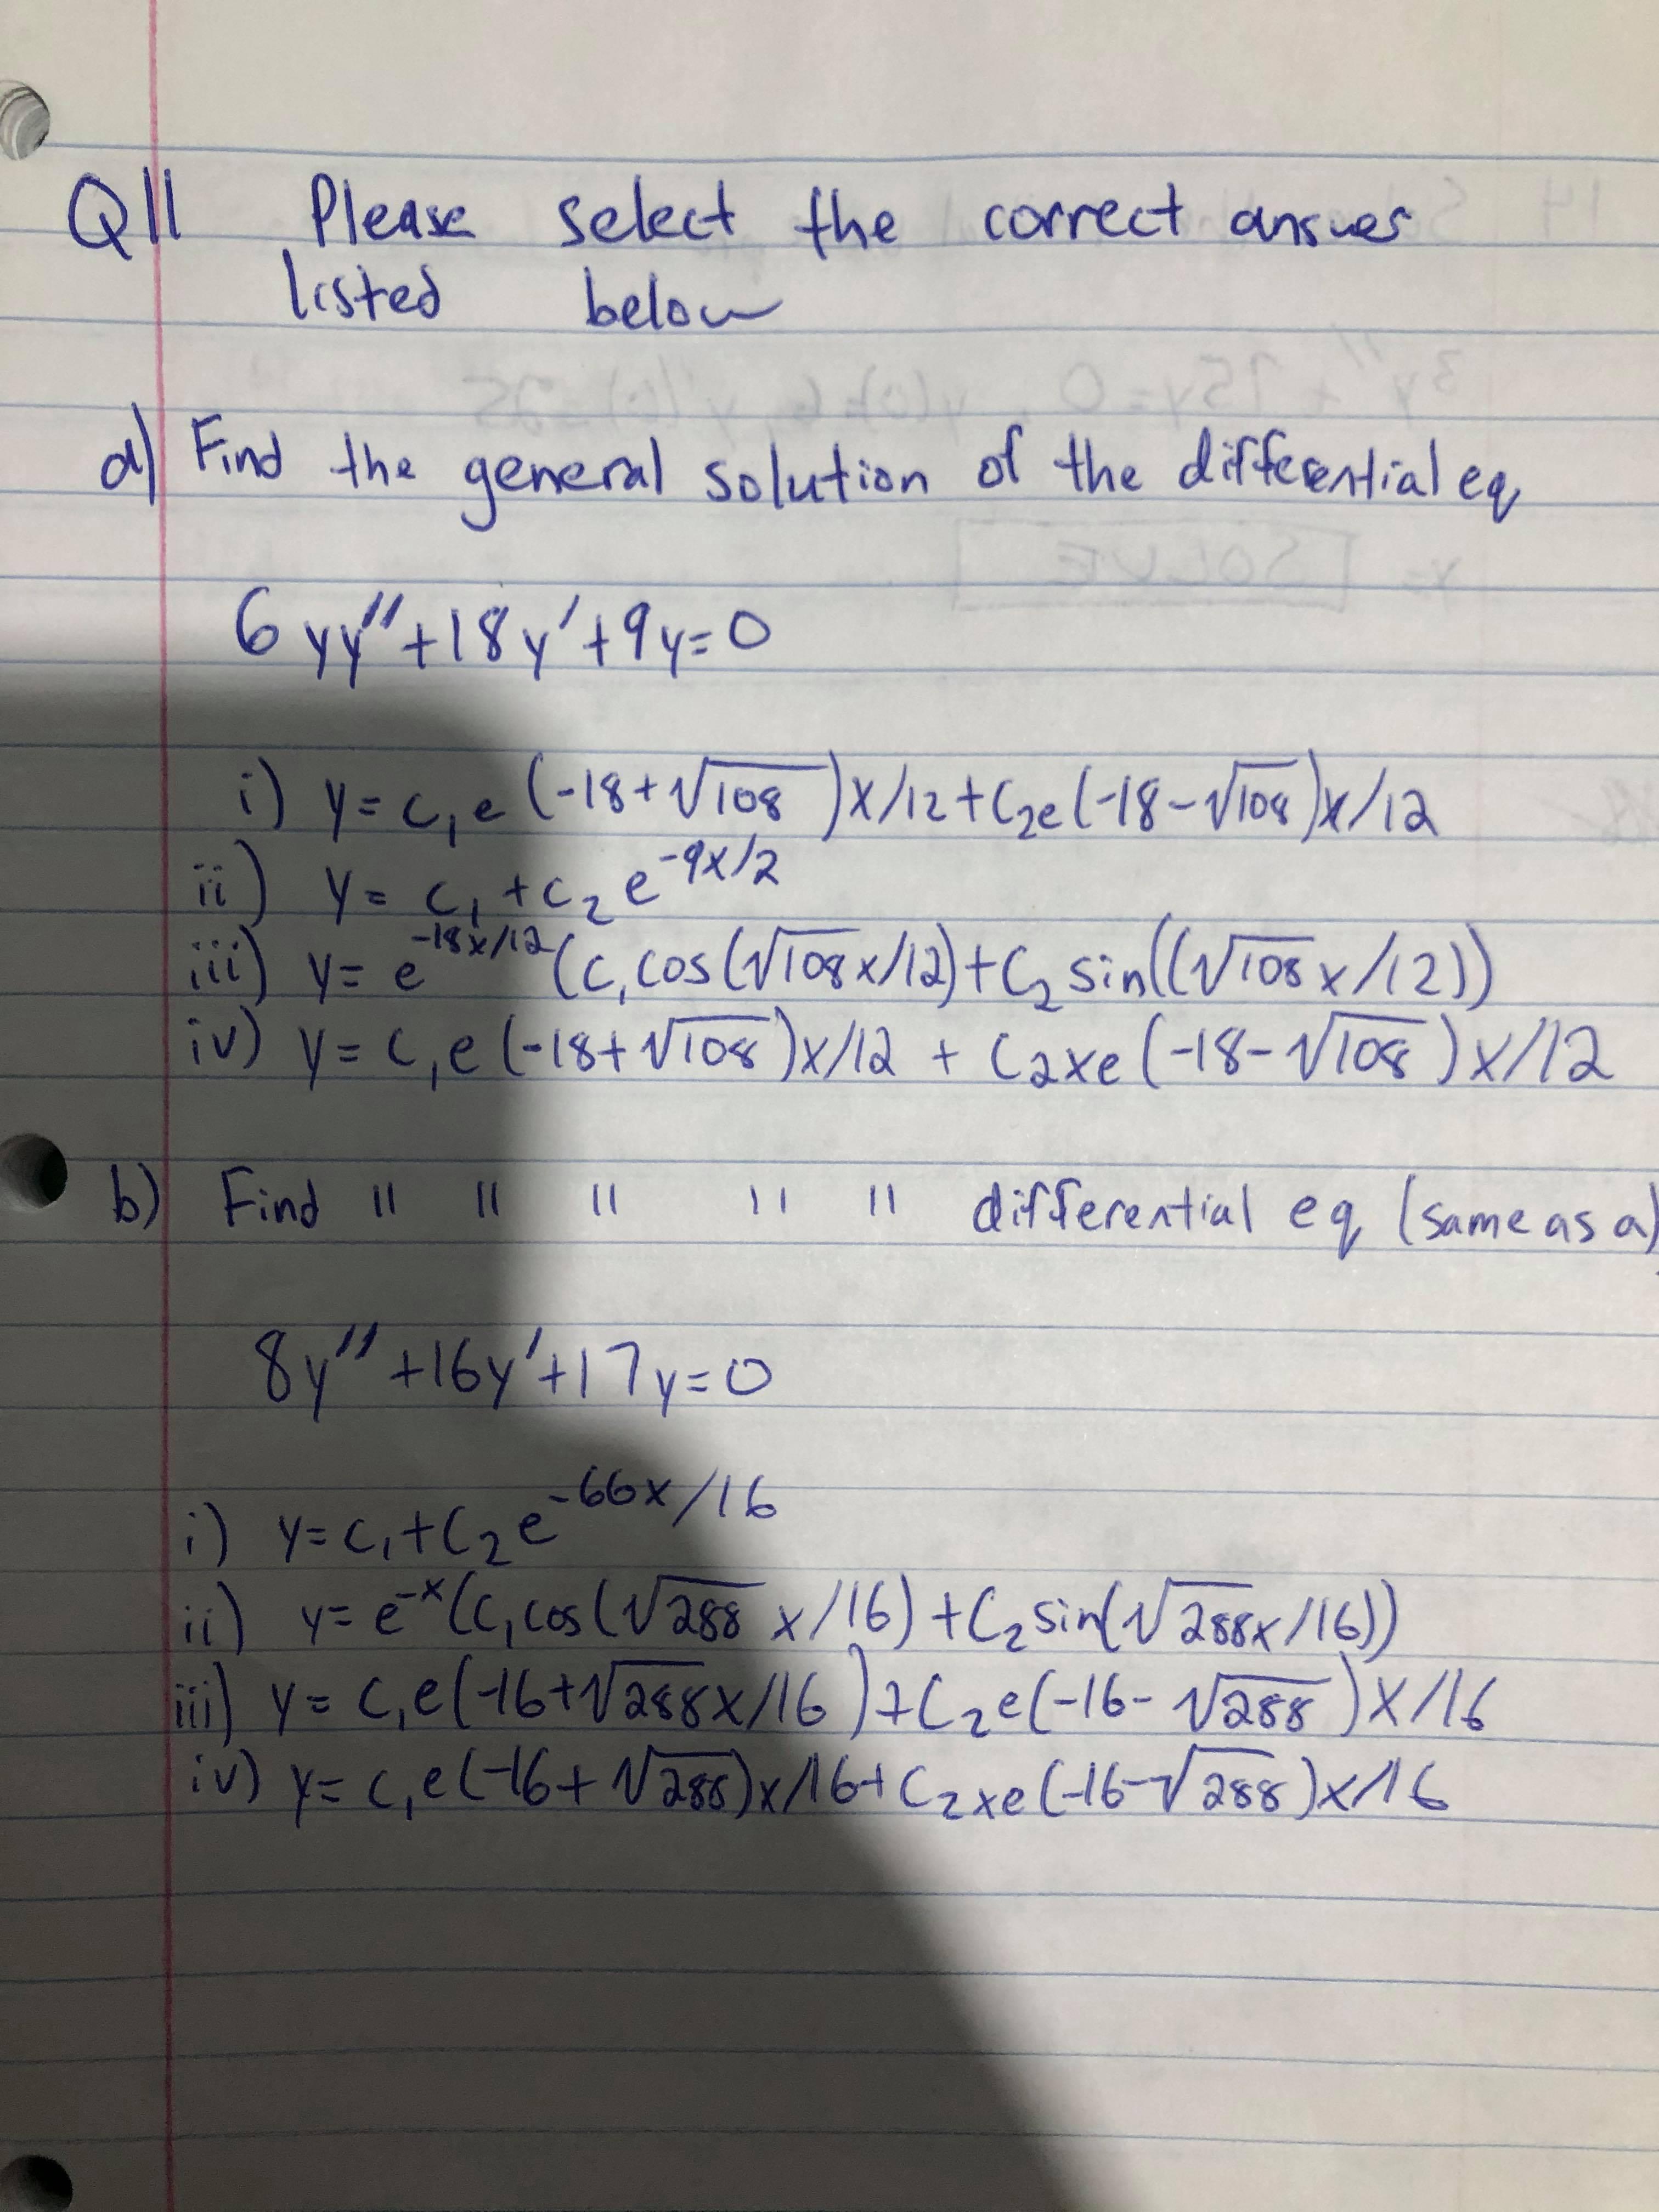 Q11 Please select the correct answer
listed below
a) Find the general solution of the differential eq
6yy''+18y'+9y=0
i) y=c₁e(-18+√108)x/12+c₂e(-18-√108)x/12
ii) y=c₁+c₂e^-9x/2
iii) y=e^-18x/12(c₁cos(√108x/12)+c₂sin((√108x/12))
iv) y=c₁e(-18+√108)x/12 + c₂xe(-18-√108)x/12
b) Find " " " " " differential eq (same as a)
8y''+16y'+17y=0
i) y=c₁+c₂e^-66x/16
ii) y=e^-x(c₁cos(√288x/16)+c₂sin(√288x/16))
iii) y=c₁e(-16+√288x/16)+c₂e(-16-√288)x/16
iv) y=c₁e(-16+√288)x/16+c₂xe(-16-√288)x/16